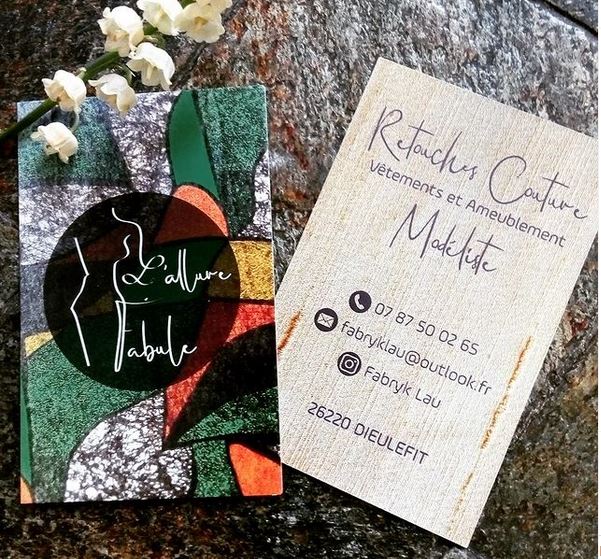 L'allure
Fabule
Retouches Couture
Vêtements et Ameublement
Modéliste
07 87 50 02 65
fabryklau@outlook.fr
Fabryk Lau
26220 DIEULEFIT